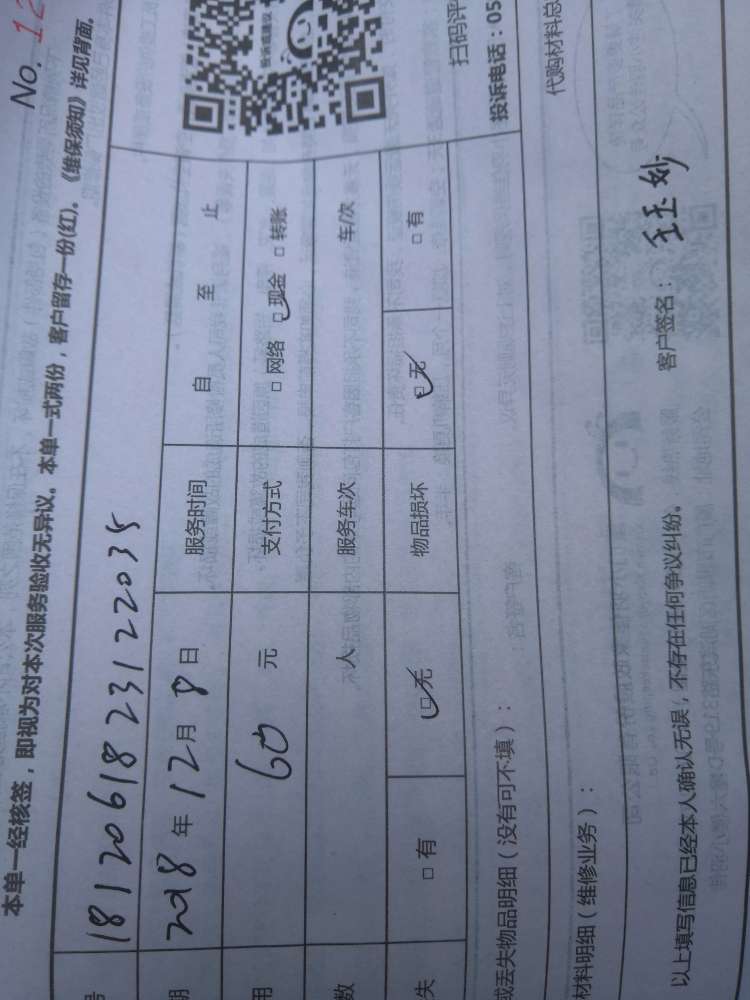 No. 12
本单一经核签，即视为对本次服务验收无异议。本单一式两份，客户留存一份(红)。《维保须知》详见背面。
号 1812061823122035
期 2018 年 12 月 8 日 服务时间 自 至 止
用 60 元 支付方式 □ 网络 □ 现金 □ 转账
数 人 服务车次 车/次
失 □ 有 □ 无 物品损坏 □ 无 □ 有
投诉或建议
扫码评
投诉电话：05
或丢失物品明细（没有可不填）：
代购材料总
材料明细（维修业务）：
以上填写信息已经本人确认无误，不存在任何争议纠纷。 客户签名：王玉妙